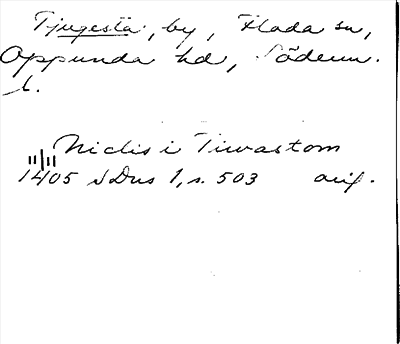 Tjugesta, by, Floda sn,
Oppunda hd, Söderm.
l.
Niclis i Tiwastom
11/11 1405 SDns 1, s. 503 orig.